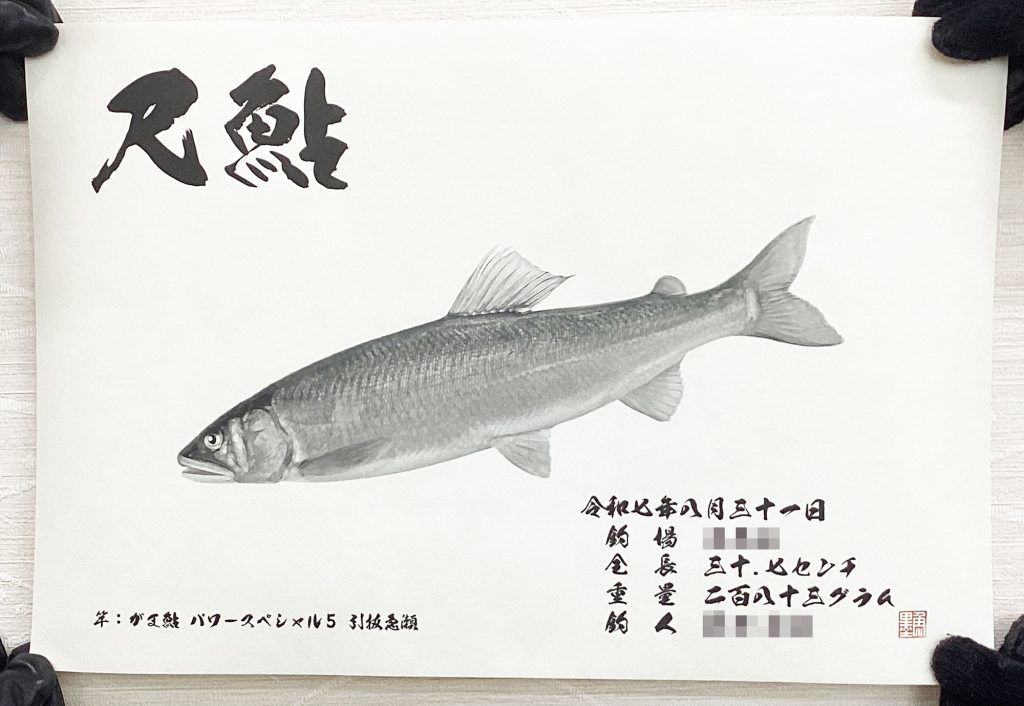 尺鮎
令和七年八月三十一日
釣場
全長 三十.七センチ
重量 二百八十三グラム
釣人
竿：がま鮎 パワースペシャル5 引抜急瀬